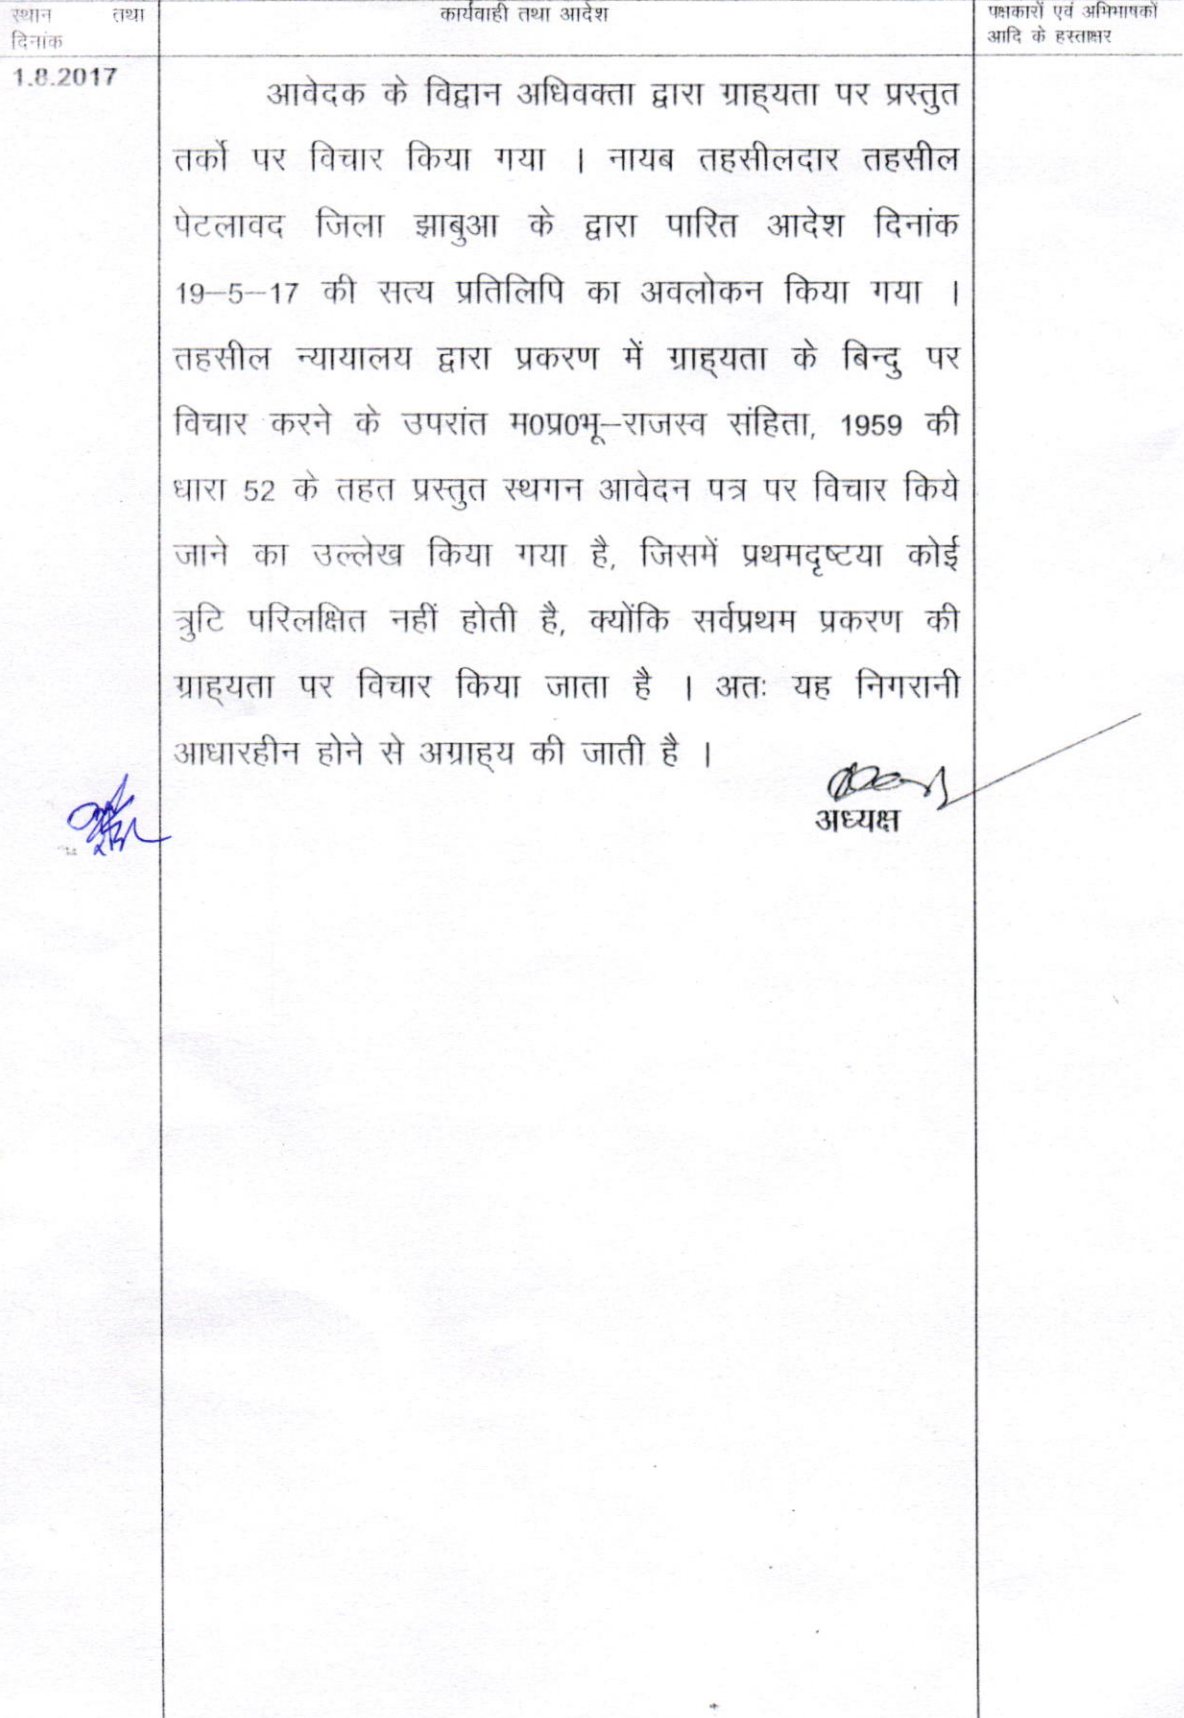 स्थान तथा
दिनांक
कार्यवाही तथा आदेश
पक्षकारों एवं अभिभाषकों
आदि के हस्ताक्षर
1.8.2017
आवेदक के विद्वान अधिवक्ता द्वारा ग्राह्यता पर प्रस्तुत
तर्को पर विचार किया गया । नायब तहसीलदार तहसील
पेटलावद जिला झाबुआ के द्वारा पारित आदेश दिनांक
19–5–17 की सत्य प्रतिलिपि का अवलोकन किया गया ।
तहसील न्यायालय द्वारा प्रकरण में ग्राह्यता के बिन्दु पर
विचार करने के उपरांत म0प्र0भू–राजस्व संहिता, 1959 की
धारा 52 के तहत प्रस्तुत स्थगन आवेदन पत्र पर विचार किये
जाने का उल्लेख किया गया है, जिसमें प्रथमदृष्टया कोई
त्रुटि परिलक्षित नहीं होती है, क्योंकि सर्वप्रथम प्रकरण की
ग्राह्यता पर विचार किया जाता है । अतः यह निगरानी
आधारहीन होने से अग्राह्य की जाती है ।
अध्यक्ष